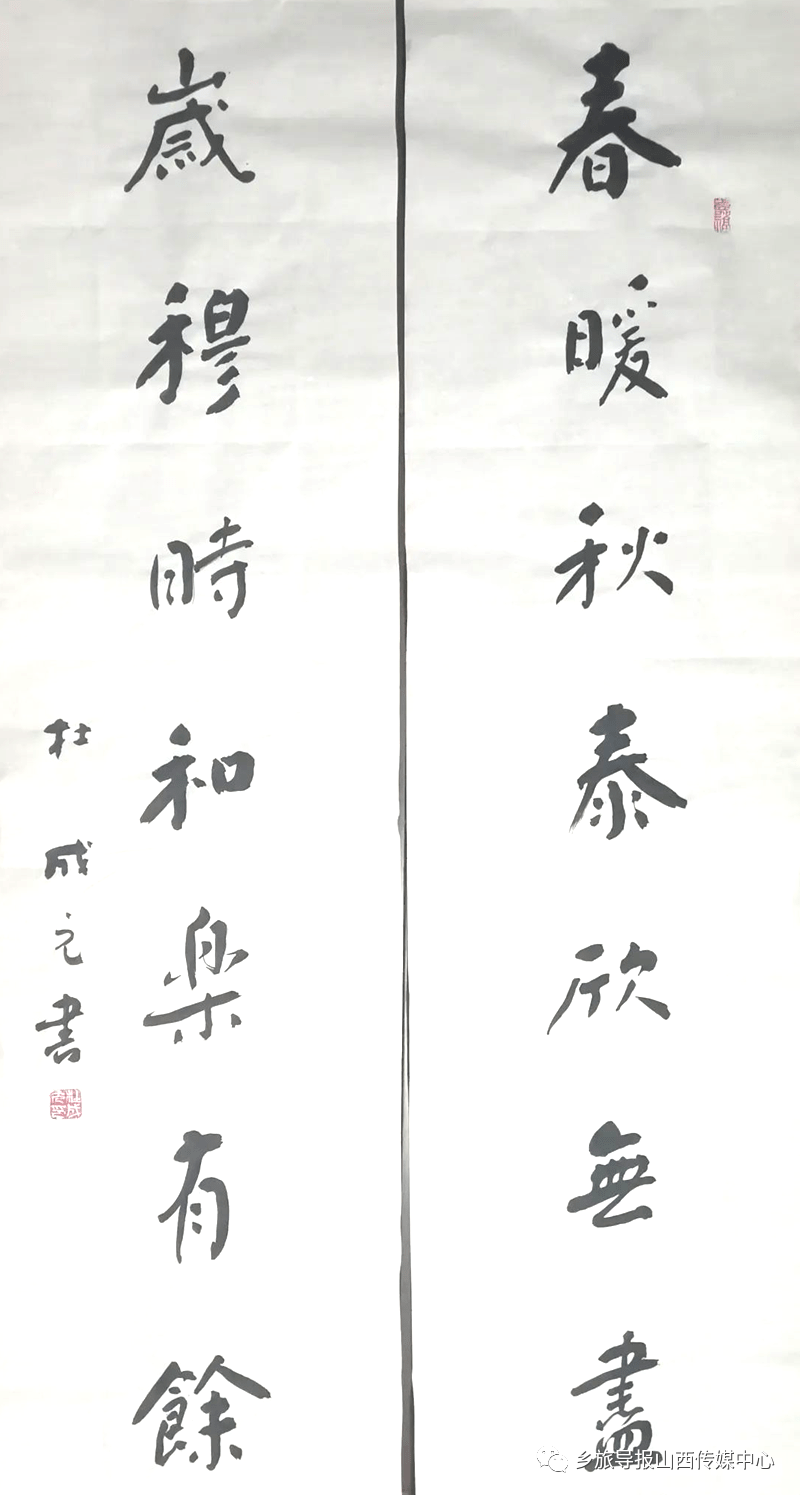 春暖秋泰欣無盡
歲穆時和樂有餘
杜成元書
乡旅导报山西传媒中心